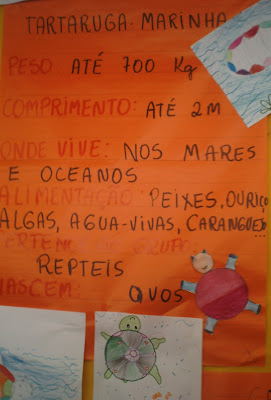 TARTARUGA: MARINHA
PESO ATÉ 700 Kg
COMPRIMENTO: ATÉ 2M
ONDE VIVE: NOS MARES
E OCEANOS
ALIMENTAÇÃO: PEIXES, OURIÇO
ALGAS, AGUA-VIVAS, CARANGUE
GRUPO:
REPTEIS
NASCEM: OVOS